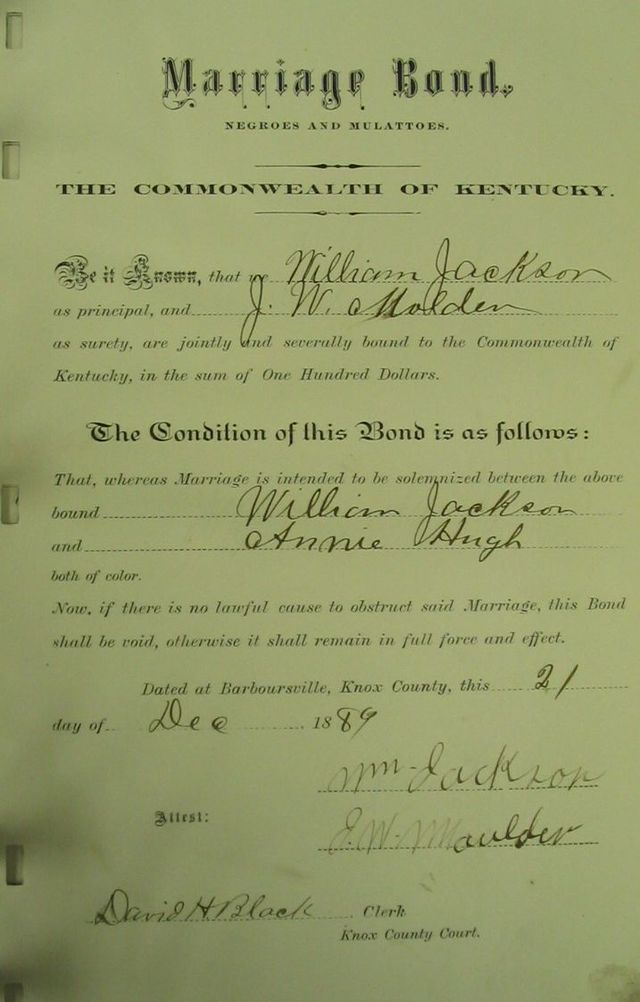 Marriage Bond.
NEGROES AND MULATTOES.
THE COMMONWEALTH OF KENTUCKY.
Be it Known, that we William Jackson
as principal, and J. W. Moulden
as surety, are jointly and severally bound to the Commonwealth of
Kentucky, in the sum of One Hundred Dollars.
The Condition of this Bond is as follows:
That, whereas Marriage is intended to be solemnized between the above
bound William Jackson
and Annie Hugh
both of color.
Now, if there is no lawful cause to obstruct said Marriage, this Bond
shall be void, otherwise it shall remain in full force and effect.
Dated at Barboursville, Knox County, this 21
day of Dec 1889
Wm Jackson
Attest:
J. W. Moulder
David H Black Clerk
Knox County Court.